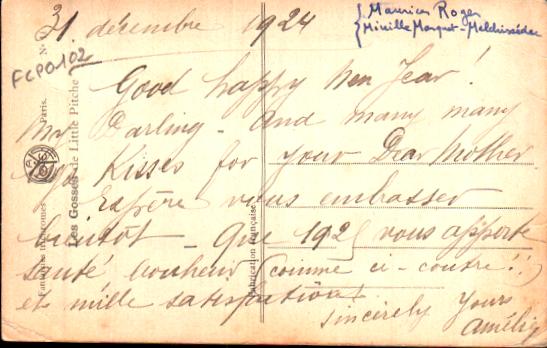 31 décembre 1924
Maurice Roger
Mireille Marquet-Melchissédec
FCP0102
Good happy New Year!
My Darling - And many many
Kisses for your Dear Mother.
Espère vous embrasser
bientôt - Que 1925 vous apporte
santé bonheur (comme ci-contre!!)
et mille satisfactions
Sincerely Yours
Amélie
Fantaisies Trichromes
Paris.
Les Gosses de Little Pitche
Fabrication Française